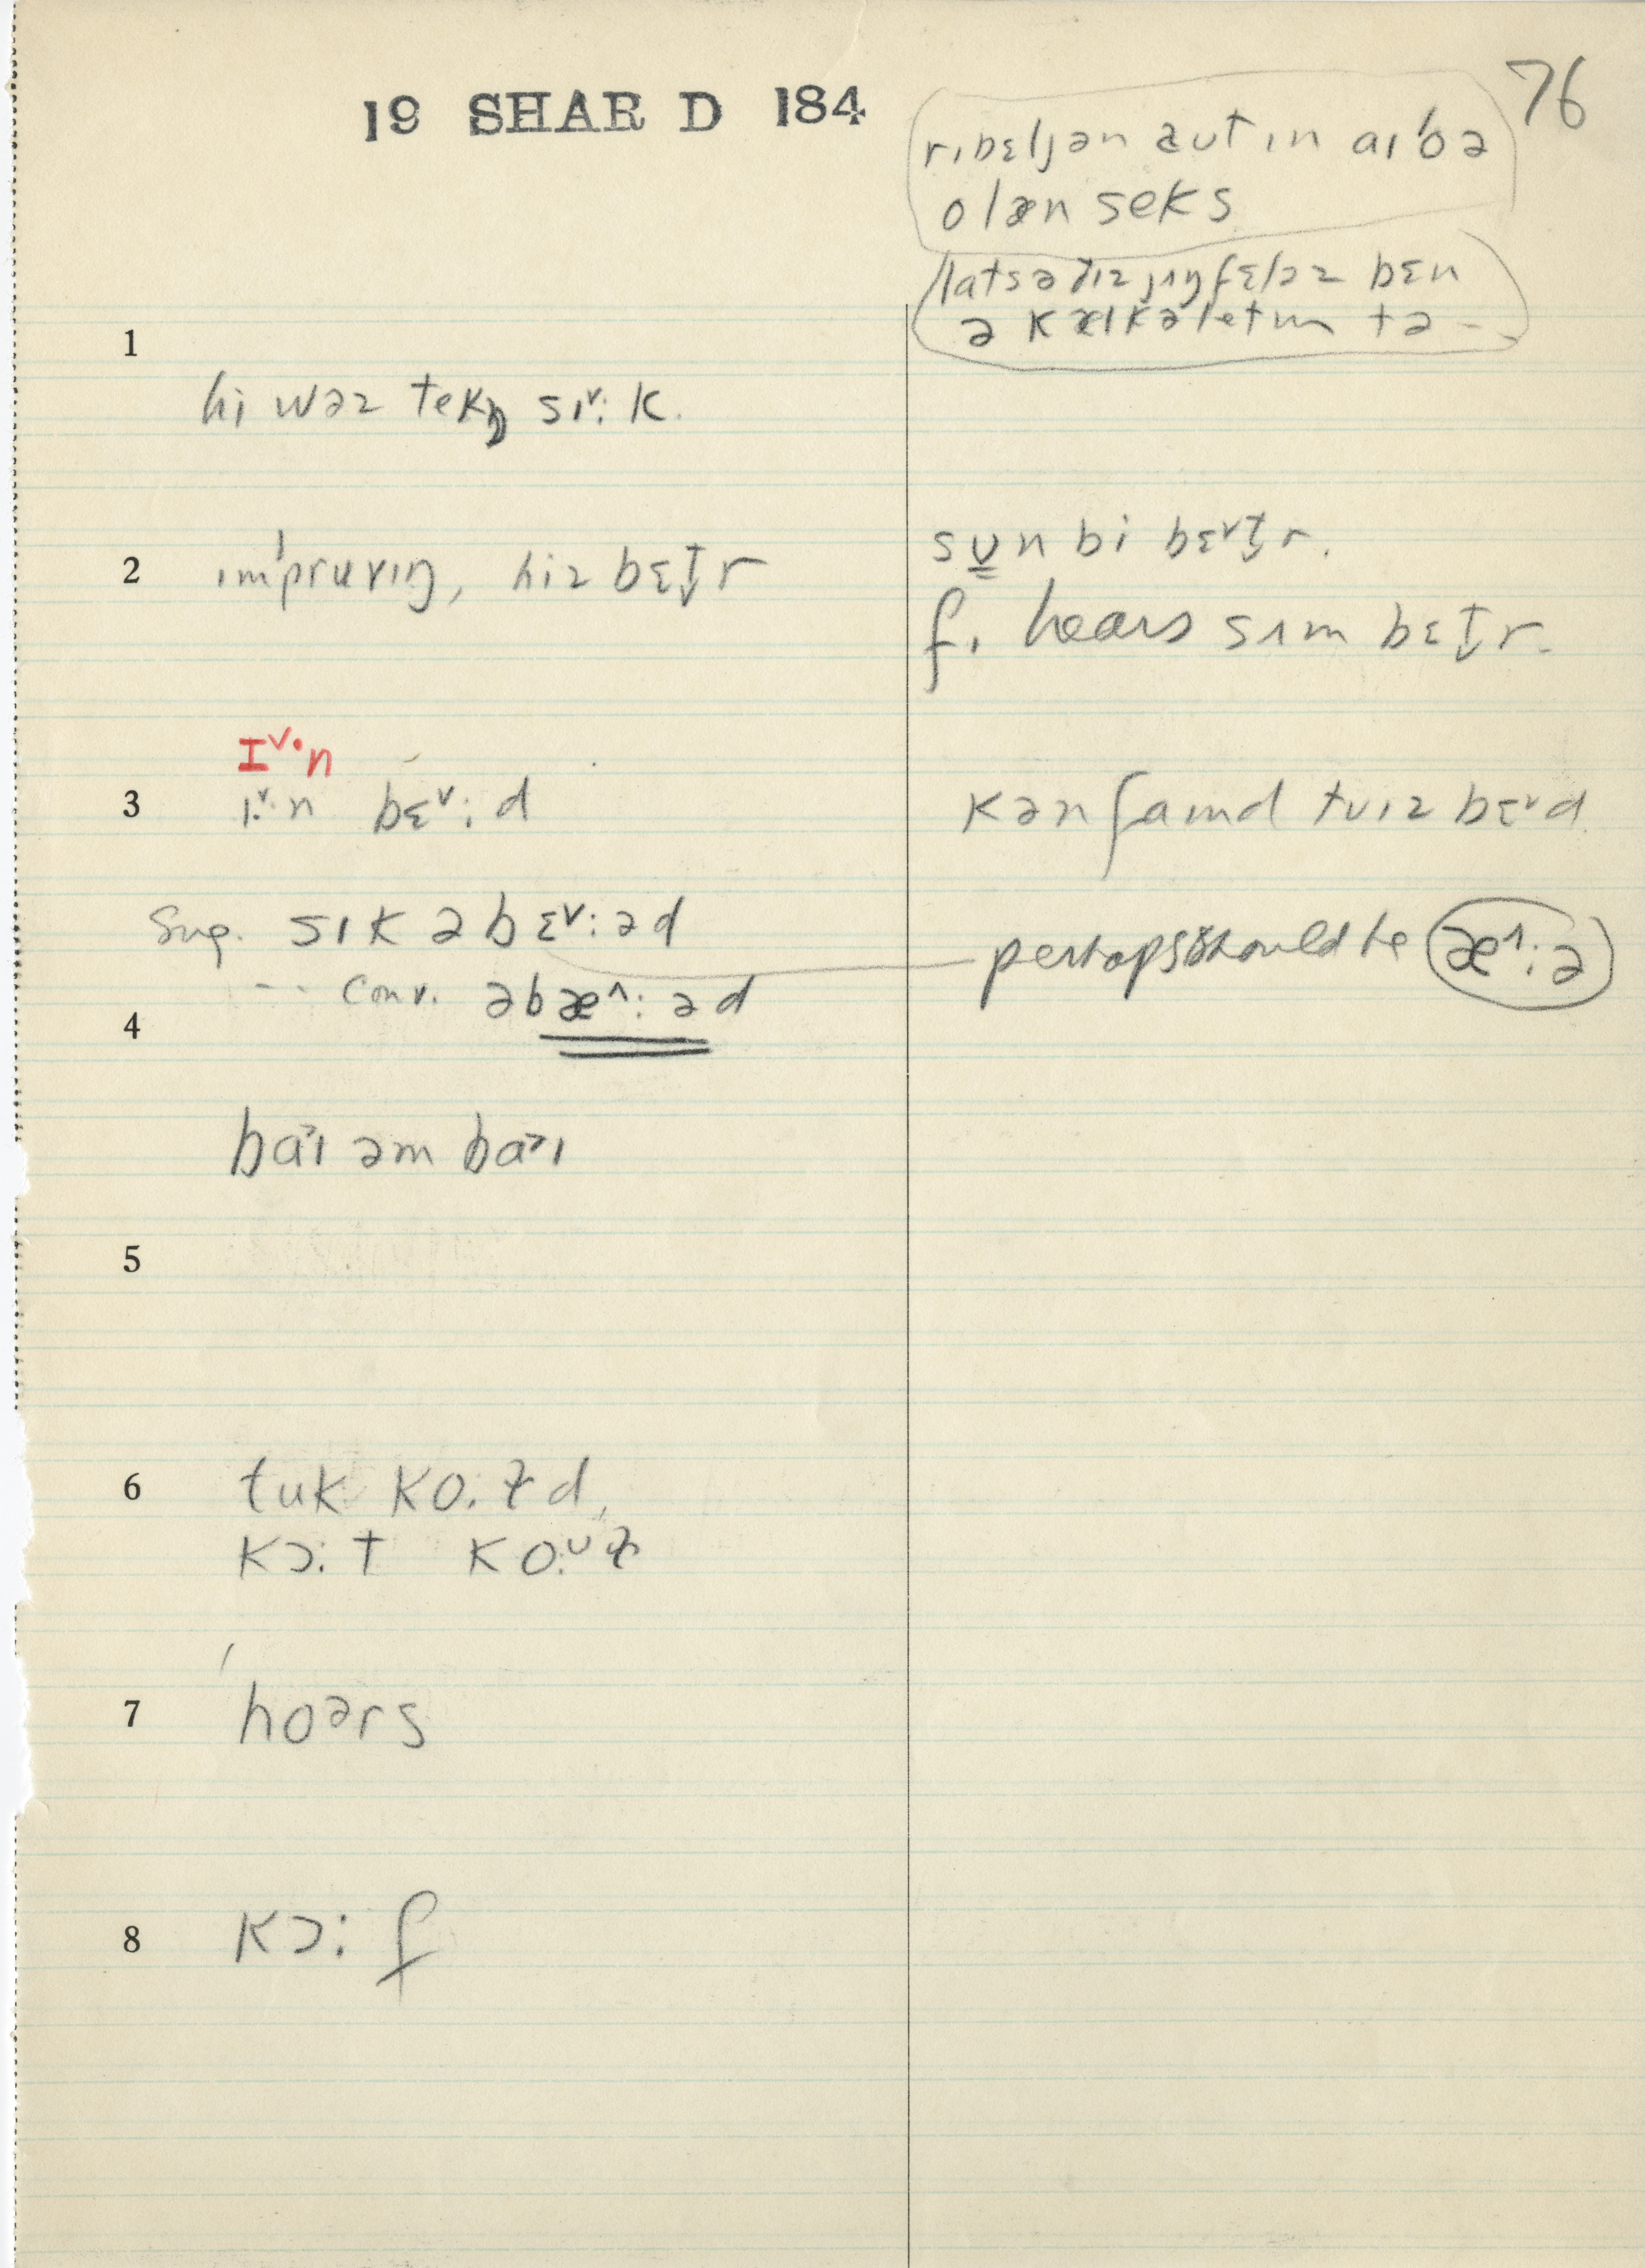 19 SHAR D 184
76
rɪbɛljən aut ɪn aɪˈoə
olæn seks
latsə ðɪz jʌŋ fɛləz bɛn
ə kælkəletɪn tə -
1
hi wəz tekŋ sɪ˅: k.
2 ɪmˈpruvɪŋ, hiz bɛt̬r
sᴜn bi bɛ˅t̬r.
f. hears sʌm bɛt̬r.
ɪ˅·n
3 ɪ˅·n bɛ˅: d
kənfaɪnd tu ɪz bɛ˅d
Sug. sɪk əbɛ˅: əd
perhaps should be æ^: ə
-- conv. əbæ^: əd
4
ba˃ɪ əm ba˃ɪ
5
6 tuk ko: ɫd,
kɔ: t ko:ᵁɫ
7 hoərs
8 kɔ: f